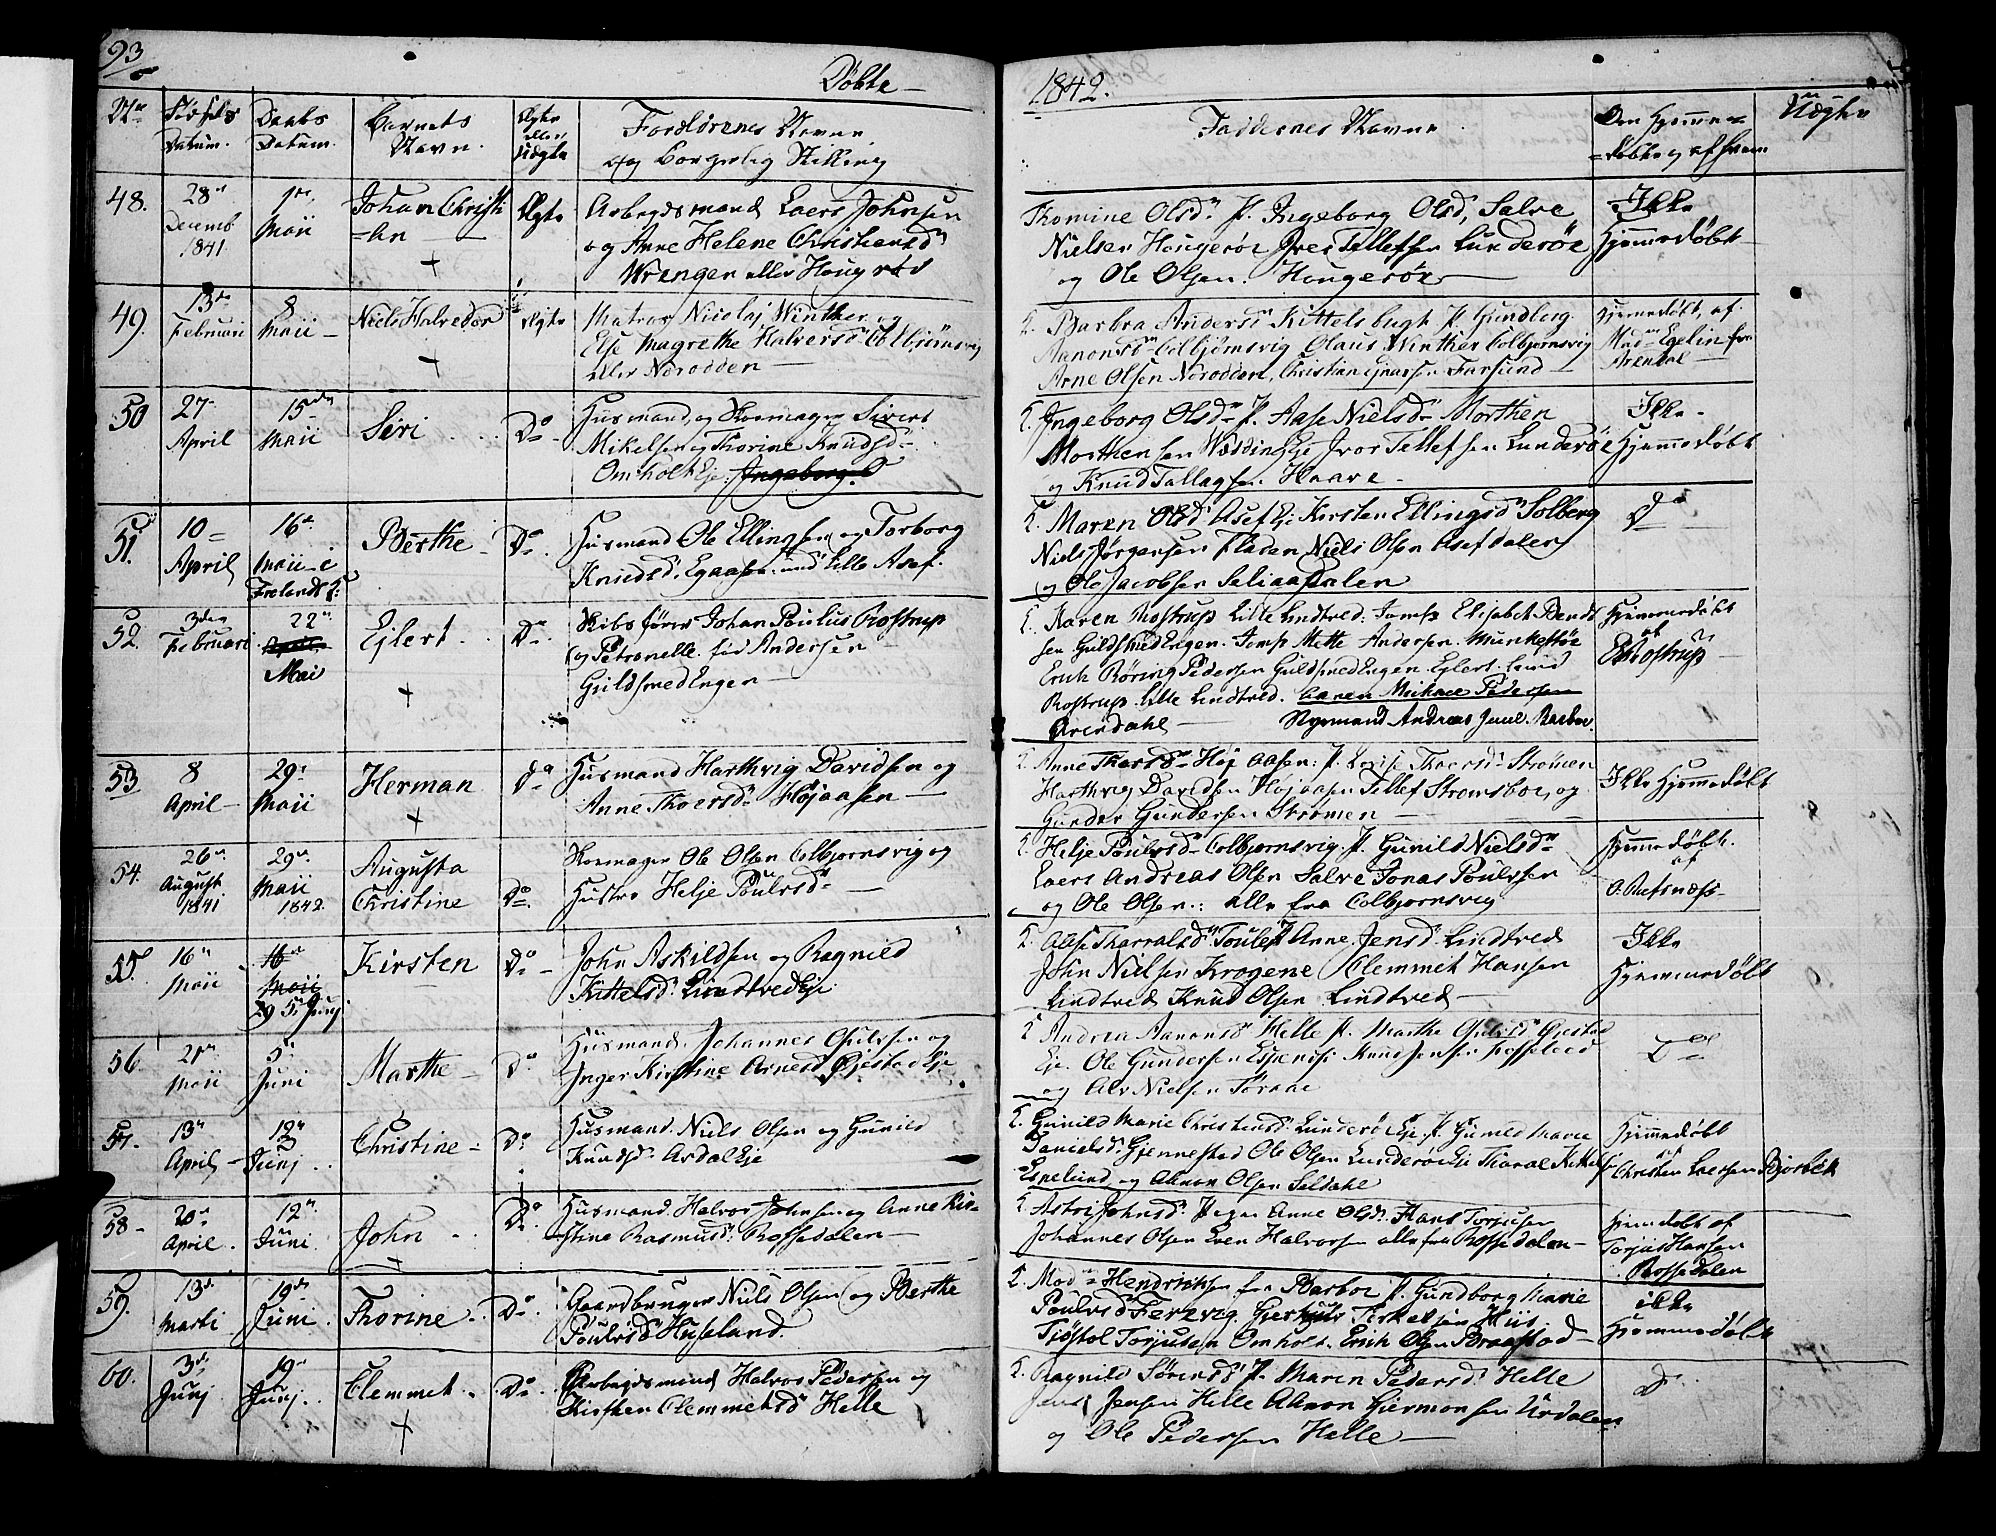 93
Døbte
1842.
No
Fødsels
Datum.
Daabs
Datum.
Barnets
Navn.
Ægte
eller
Uægte
Forældrenes Navne
og Borgerlig Stilling
Faddernes Navne
Om Hjemme=
=døbte og af hvem
Uægte
48.
28de
Decemb
1841.
1ste
Maii
Johan Christi
=an
Ægte
Arbeydsmand Laers Johnsen
og Anne Helene Christensdr
Wrengen eller Houg
Thomine Olsdr P. Ingeborg Olsd, Salve
Nielsen Hougerøe Iver Tellefsen Lunderøe
og Ole Olsen. Hougerøe
Ikke
Hjemmedøbt
49.
13de
Februari
8
Maii
Niels Halvedor
Ægte
Matros Nicolaj Winther og
Else Magrethe Halversdr Colbjørnsvig
eller Norodden
Barbra Andersd Kittelsbugt P. Gundborg
Aanonsdr Colbjørnsvig Olaus Winther Colbjørnsvig
Arne Olsen Norodden, Christian Farsund
Hjemmedøbt, af
Mad. fra
Arendal
50
27
April
15de
Maii
Siri
Do
Husmand og Skomager Sivert
Mikelsen og Thorine Knudsdr
Omholt Eje. Ingeborg O
Ingeborg Olsdr P. Aase Nielsdr Morthen
Morthensen Eje Iver Tellefsen Lunderøe
og Knud Tallagsen Haave
Ikke
Hjemmedøbt
51.
10
April
16de
Maii i
Froelands K:
Berthe
Do
Husmand Ole Ellingsen og Torborg
Knudsd. Egaasen und Lille Asef.
Maren Olsd Asef Eje Kirsten Ellingsdr Solberg
Niels Jørgensen Fladen Niels Olsen Asefdalen
og Ole Jacobsen
Do
52.
3die
Februari
22de
April
Mai
Ejlert
Do
Skibsfører Johan Poulus Rostrup
og Petronelle fød Andersen
Guldsmedengen
Karen Rostrup Lille Lindtved: Jomf. Elisabet Bendt
sen Guldsmedengen. Jomf. Mette Andersen Munkestøe
Erich Røring Pedersen Guldsmedengen. Ejlert
Rostrup Lille Lindtved. Caren Mickaele Pedersen
Arendahl Andreas Juul. Barboe
Hjemmedøbt
af
E. Rostrup
53
8
April
29de
Maii
Herman
do
Husmand Harthvig Davidsen og
Anne Thorsdr Højaasen
Anne Thorsdr Højaasen: P. Lovise Thorsdr Strømen
Harthvig Davidsen Højaasen Tellef Strømsboe, og
Gunder Gundersen Strømen
Ikke Hjemmedøbt
54.
26de
August
1841
29de
Maii
1842.
Augusta
Christine
Do
Skomager Ole Olsen Colbjørnsvig og
Hustro Helje Poulsdr
Helje Poulsdr Colbjørnsvig P. Gunild Nielsdr
Laers Andreas Olsen Salve Jonas Poulssen
og Ole Olsen: alle fra Colbjørnsvig
Hjemmedøbt.
af
55.
16de
Maii
Maii
29 Juni
Kirsten
Do
John Askildsen og Ragnild
Kittelsd. Lindtved Eje
Aase Tharalsdr P Anne Jensd Lindtved
John Nielsen Krogene Clemmet Hansen
Lindtved Knud Olsen Lindtved
Ikke
Hjemmedøbt
56.
21de
Maii
5te
Juni
Marthe
Do
Husmand Johannes Gulvsen og
Inger Kirstine Arnesd. Øjestad Eje
Andrea Aanonsd Helle P. Marthe Gulvsd Øjestad
Eje. Ole Gundersen Espenæs Knud Jensen
og Alv Nielsen
Do
57.
13de
April
12te
Junj
Christine
Do
Husmand Niels Olsen og Gunild
Knudsdr Asdal Eje
Gunild Marie Christensd. Lunderøe Eje P. Gunild Marie
Danielsd. Gjennestad Ole Olsen Lunderøe Eje Tharal
Espelund og Aanon Olsen Seldahl
Hjemmedøbt
af
Christen Laersen Bjorbek
58
20de
April
12te
Juni
John
Do
Husmand Halvor Johnsen og Anne Kir=
stine Rasmusd. Rossedalen
Astri Johnsd. Anne Olsdr Hans Torjusen
Johannes Olsen Even Halvorsen alle fra Rossedalen
Hjemedøbt af
Torjus Hansen
Rossedalen
59.
13de
Marti
19de
Juni
Thorine
Do
Gaardbruger Niels Olsen og Berthe
Poulsd Huseland
Mad. Hendriksen fra Barboe P. Gundborg Marie
Poulsd Fervig Terkelsen Huis
Tjøstol Torjusen Omholt. Erik Olsen Braastad
ikke
Hjemmedøbt
60.
3de
Junj
19de
Junj
Clemmet
Do
Arbejdsmand Halvor Pedersen og
Kirsten Clemmetsd Helle
Ragnild Sørensd P. Maren Pedersd Helle
Jens Jensen Helle Aanon Gjermonsen Urdalen
og Ole Pedersen Helle
Do